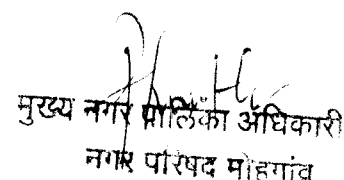 मुख्य नगर पालिका अधिकारी
नगर परिषद मोहगांव